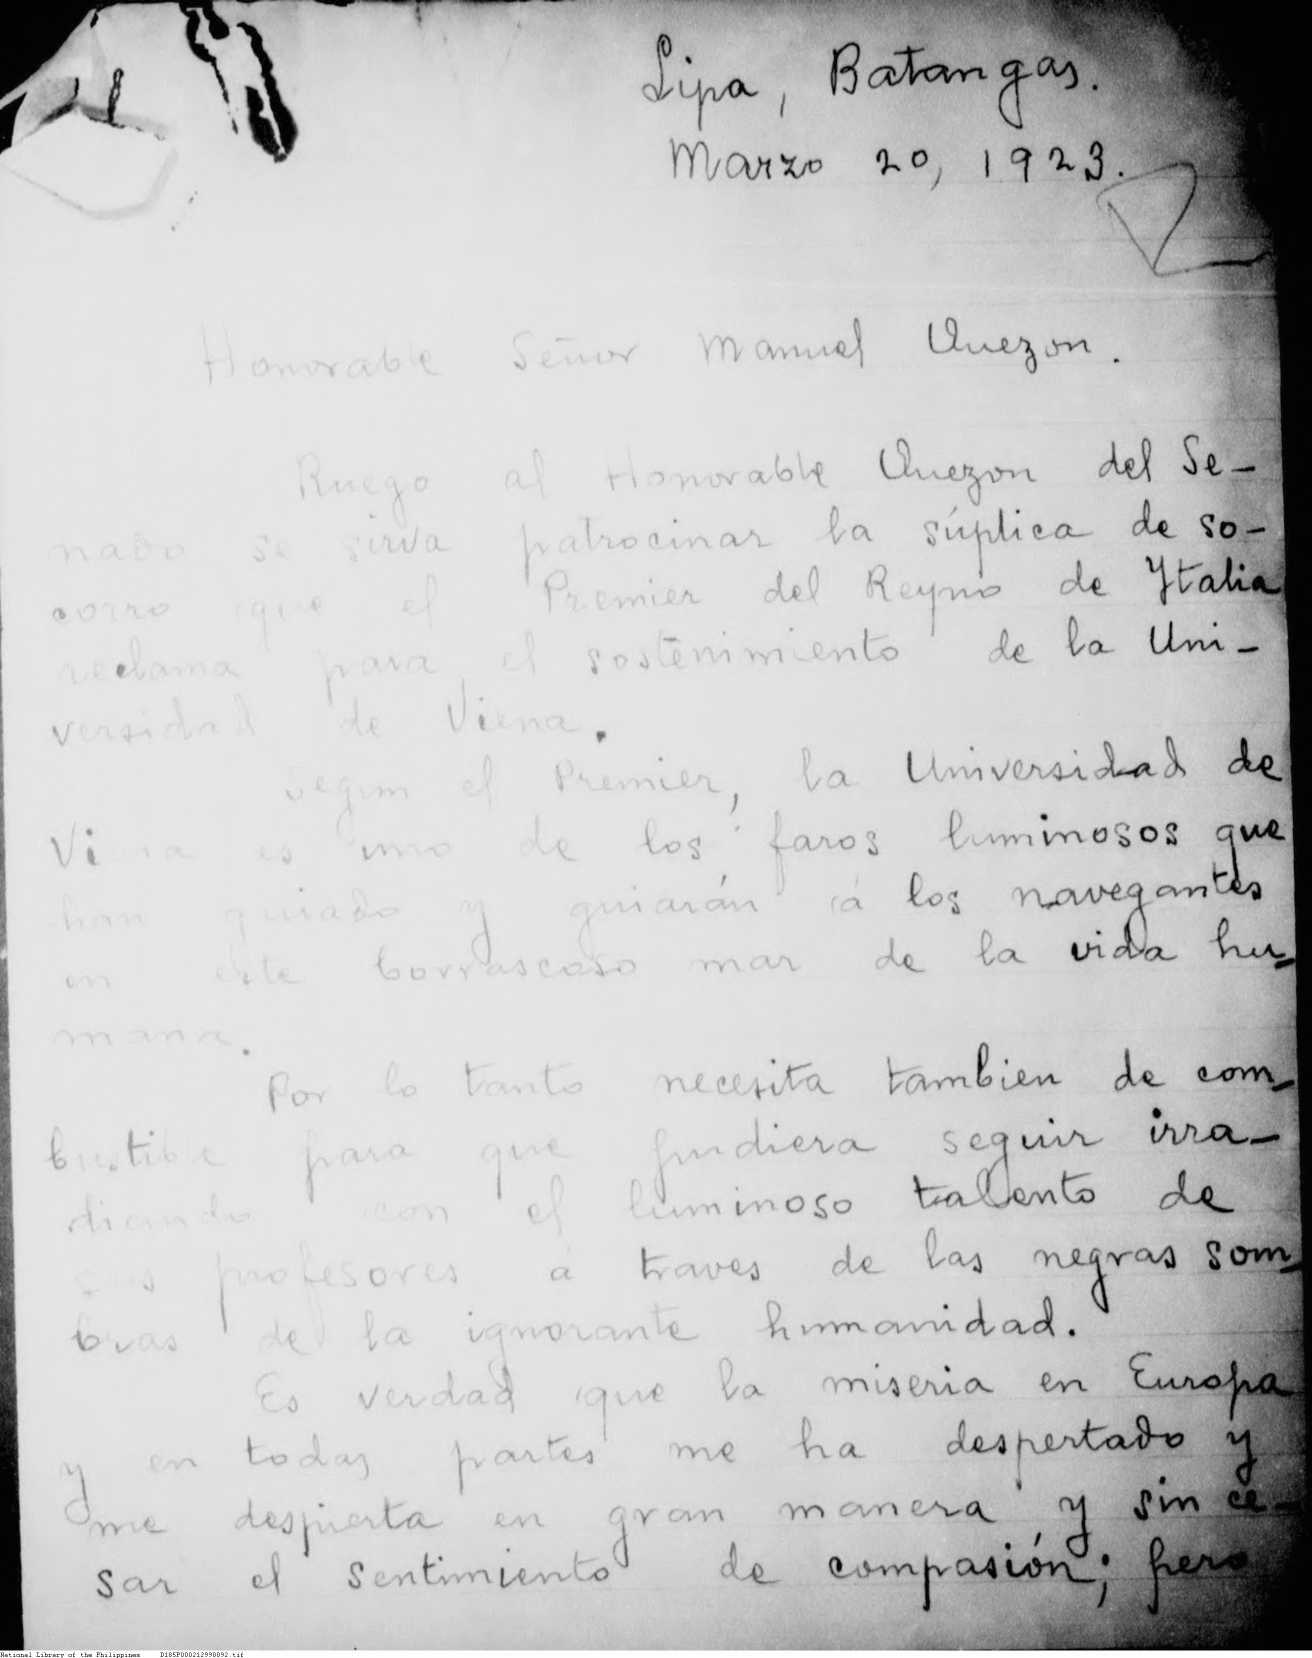 Lipa, Batangas.
Marzo 20, 1923.
Honorable Señor Manuel Quezon.
Ruego al Honorable Quezon del Se-
nado se sirva patrocinar la súplica de so-
corro que el Premier del Reyno de Ytalia
reclama para el sostenimiento de la Uni-
versidad de Viena.
Segun el Premier, la Universidad de
Viena es uno de los faros luminosos que
han guiado y guiarán á los navegantes
en este borrascoso mar de la vida hu-
mana.
Por lo tanto necesita tambien de com-
bustible para que pudiera seguir irra-
diando con el luminoso talento de
sus profesores á traves de las negras som-
bras de la ignorante humanidad.
Es verdad que la miseria en Europa
y en todas partes me ha despertado y
me despierta en gran manera y sin ce-
sar el sentimiento de compasión; pero
National Library of the Philippines D185P000212990892.tif